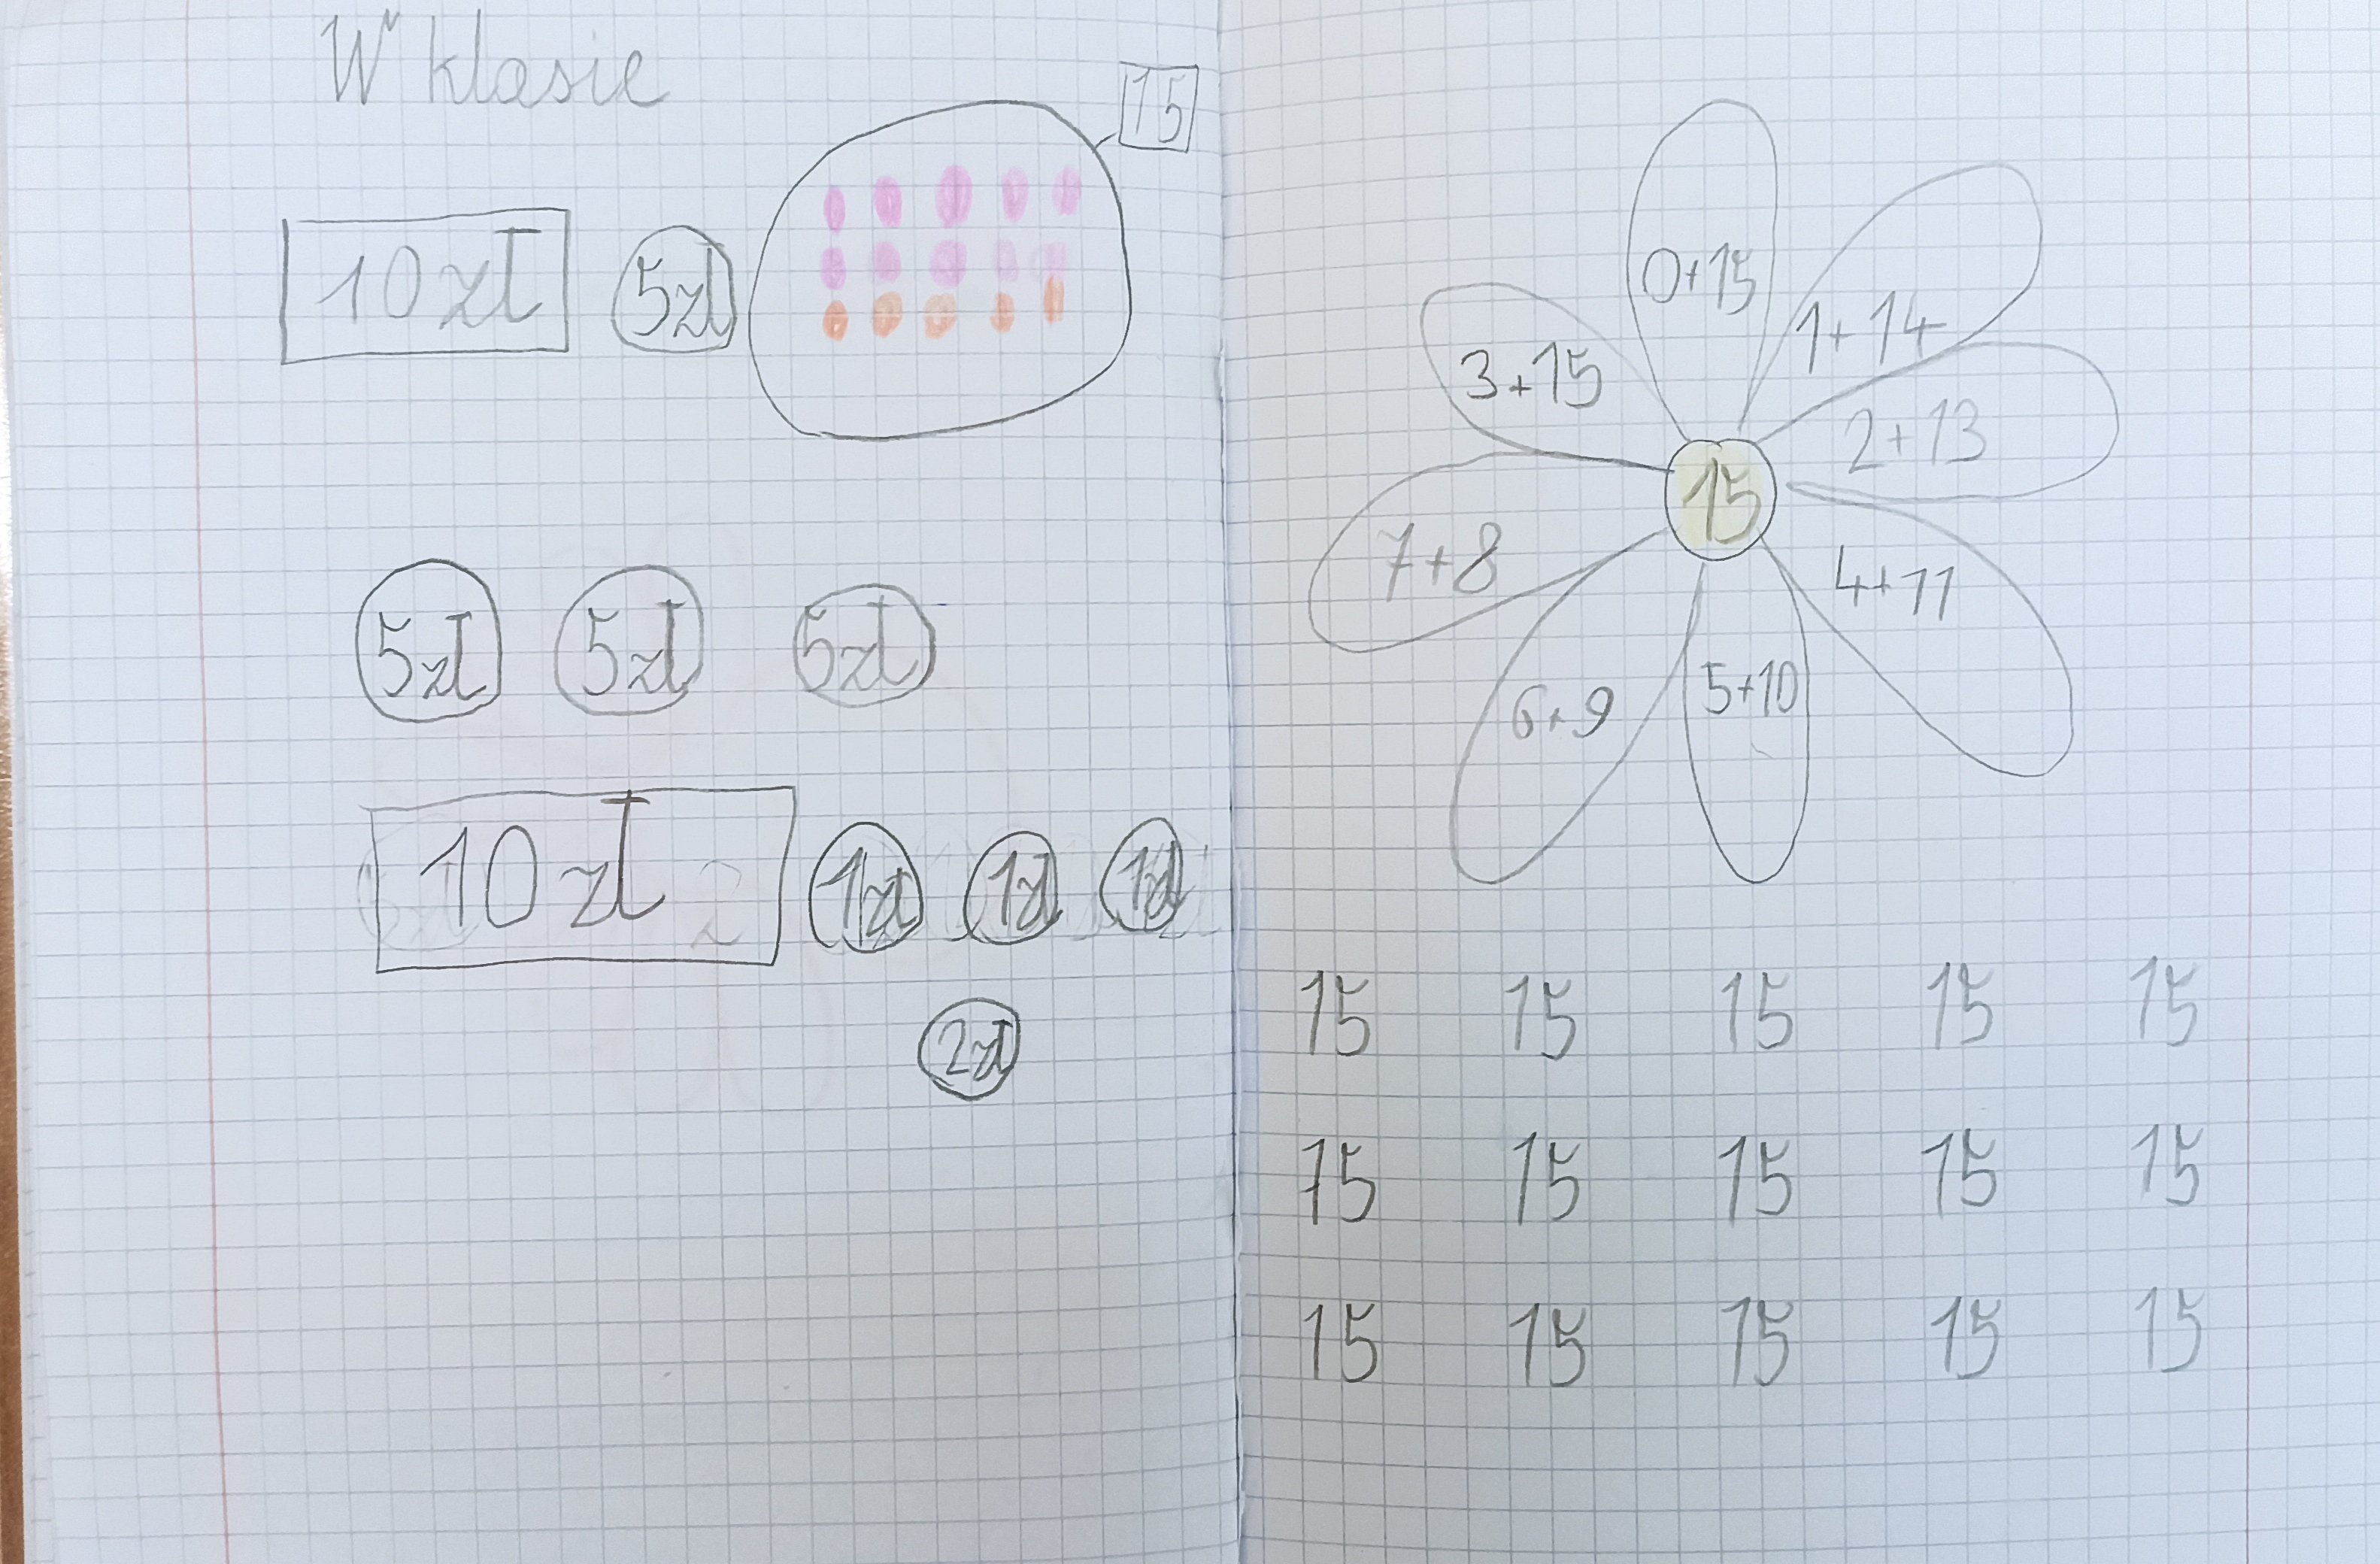 W klasie
15
10 zł 5 zł
5 zł 5 zł 5 zł
10 zł 1 zł 1 zł 1 zł
2 zł
0+15
1+14
3+15
2+13
15
7+8
4+11
6+9
5+10
15 15 15 15 15
15 15 15 15 15
15 15 15 15 15